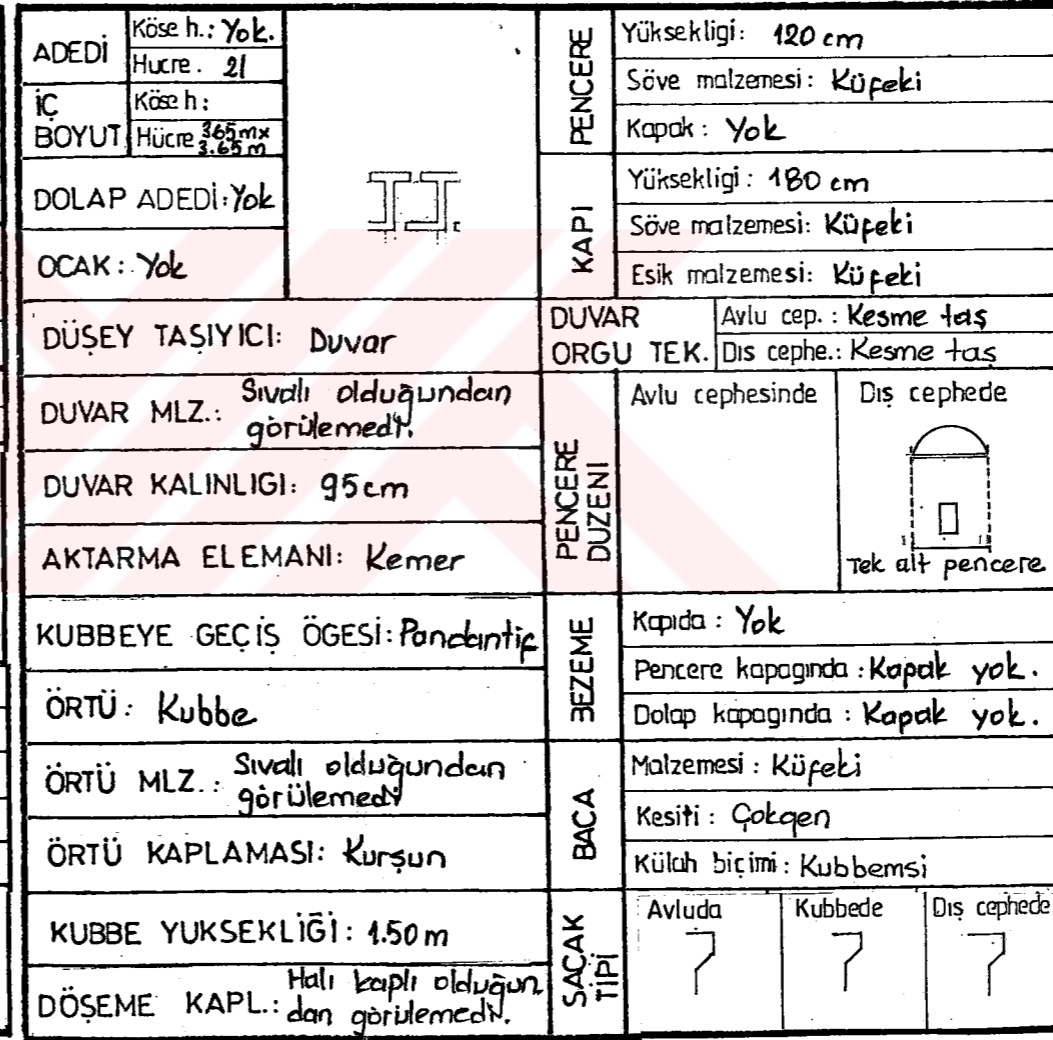 ADEDİ
Köse h.: Yok.
Hucre. 21
İÇ BOYUT
Köse h:
Hücre 365mx
3.65m
DOLAP ADEDİ: Yok
OCAK: Yok
DÜŞEY TAŞIYICI: Duvar
DUVAR MLZ.: Sıvalı olduğundan
görülemedi.
DUVAR KALINLIGI: 95cm
AKTARMA ELEMANI: Kemer
KUBBEYE GEÇİŞ ÖGESİ: Pandantif
ÖRTÜ: Kubbe
ÖRTÜ MLZ.: Sıvalı olduğundan
görülemedi
ÖRTÜ KAPLAMASI: Kurşun
KUBBE YUKSEKLİĞİ: 1.50 m
DÖŞEME KAPL.: Halı kaplı olduğun
dan görülemedi.
PENCERE
Yüksekligi: 120 cm
Söve malzemesi: Küfeki
Kapak: Yok
KAPI
Yüksekligi: 180 cm
Söve malzemesi: Küfeki
Esik malzemesi: Küfeki
DUVAR
ORGU TEK.
Avlu cep.: Kesme taş
Dıs cephe.: Kesme taş
PENCERE
DUZENI
Avlu cephesinde
Dış cephede
Tek alt pencere
BEZEME
Kapıda: Yok
Pencere kapagında: Kapak yok.
Dolap kapagında: Kapak yok.
BACA
Malzemesi: Küfeki
Kesiti: Çokgen
Külah biçimi: Kubbemsi
SAÇAK
TİPİ
Avluda
Kubbede
Dış cephede